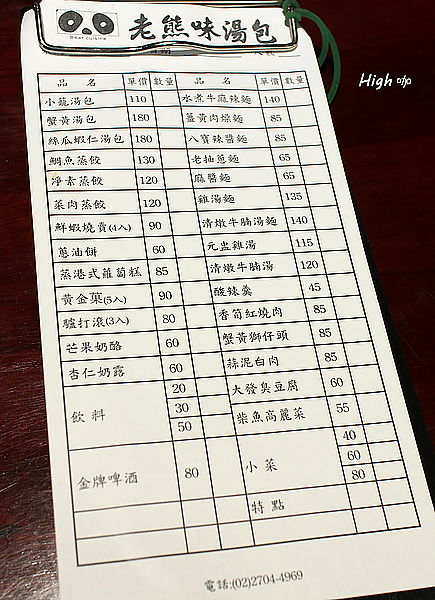 Bear cuisine
老熊味湯包
High 咖
品名 單價 數量 品名 單價 數量
小籠湯包 110 水煮牛麻辣麵 140
蟹黃湯包 180 薑黃肉燥麵 85
絲瓜蝦仁湯包 180 八寶辣醬麵 85
鯛魚蒸餃 130 老抽蔥麵 65
淨素蒸餃 120 麻醬麵 65
菜肉蒸餃 120 雞湯麵 135
鮮蝦燒賣(4入) 90 清燉牛腩湯麵 140
蔥油餅 60 元盅雞湯 115
蒸港式蘿蔔糕 85 清燉牛腩湯 120
黃金菓(5入) 90 酸辣羹 45
驢打滾(3入) 80 香筍紅燒肉 85
芒果奶酪 60 蟹黃獅仔頭 85
杏仁奶露 60 蒜泥白肉 85
飲料 20 30 50 大發臭豆腐 60
柴魚高麗菜 55
金牌啤酒 80 小菜 40 60 80
特點
電話:(02)2704-4969